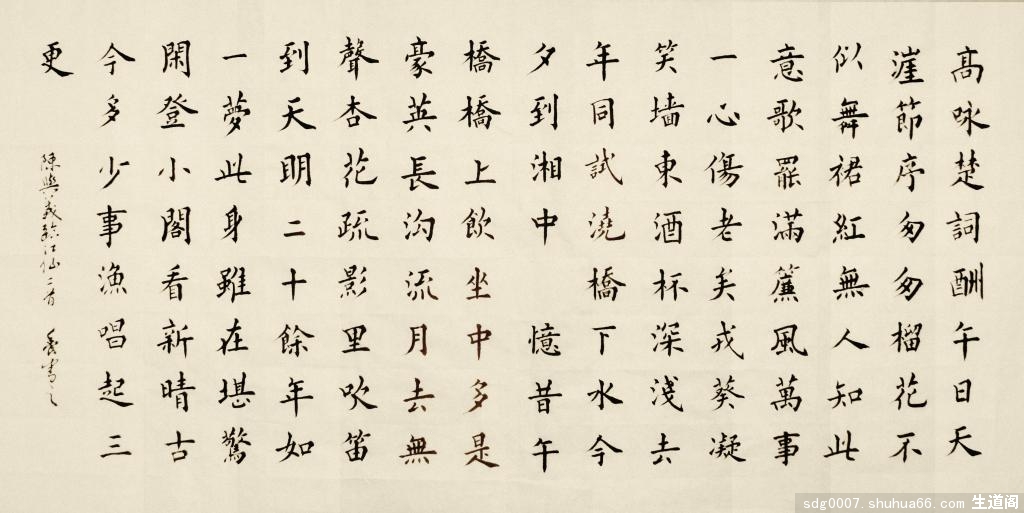 高咏楚詞酬午日天
涯節序匆匆榴花不
似舞裙紅無人知此
意歌罷滿簾風萬事
一心傷老矣戎葵凝
笑墙東酒杯深淺去
年同試澆橋下水今
夕到湘中 憶昔午
橋橋上飲坐中多是
豪英長沟流月去無
聲杏花疏影里吹笛
到天明二十餘年如
一夢此身雖在堪驚
閑登小閣看新晴古
今多少事漁唱起三
更
陳與義臨江仙二首 書之
sdg0007.shuhua66.com 生道阁